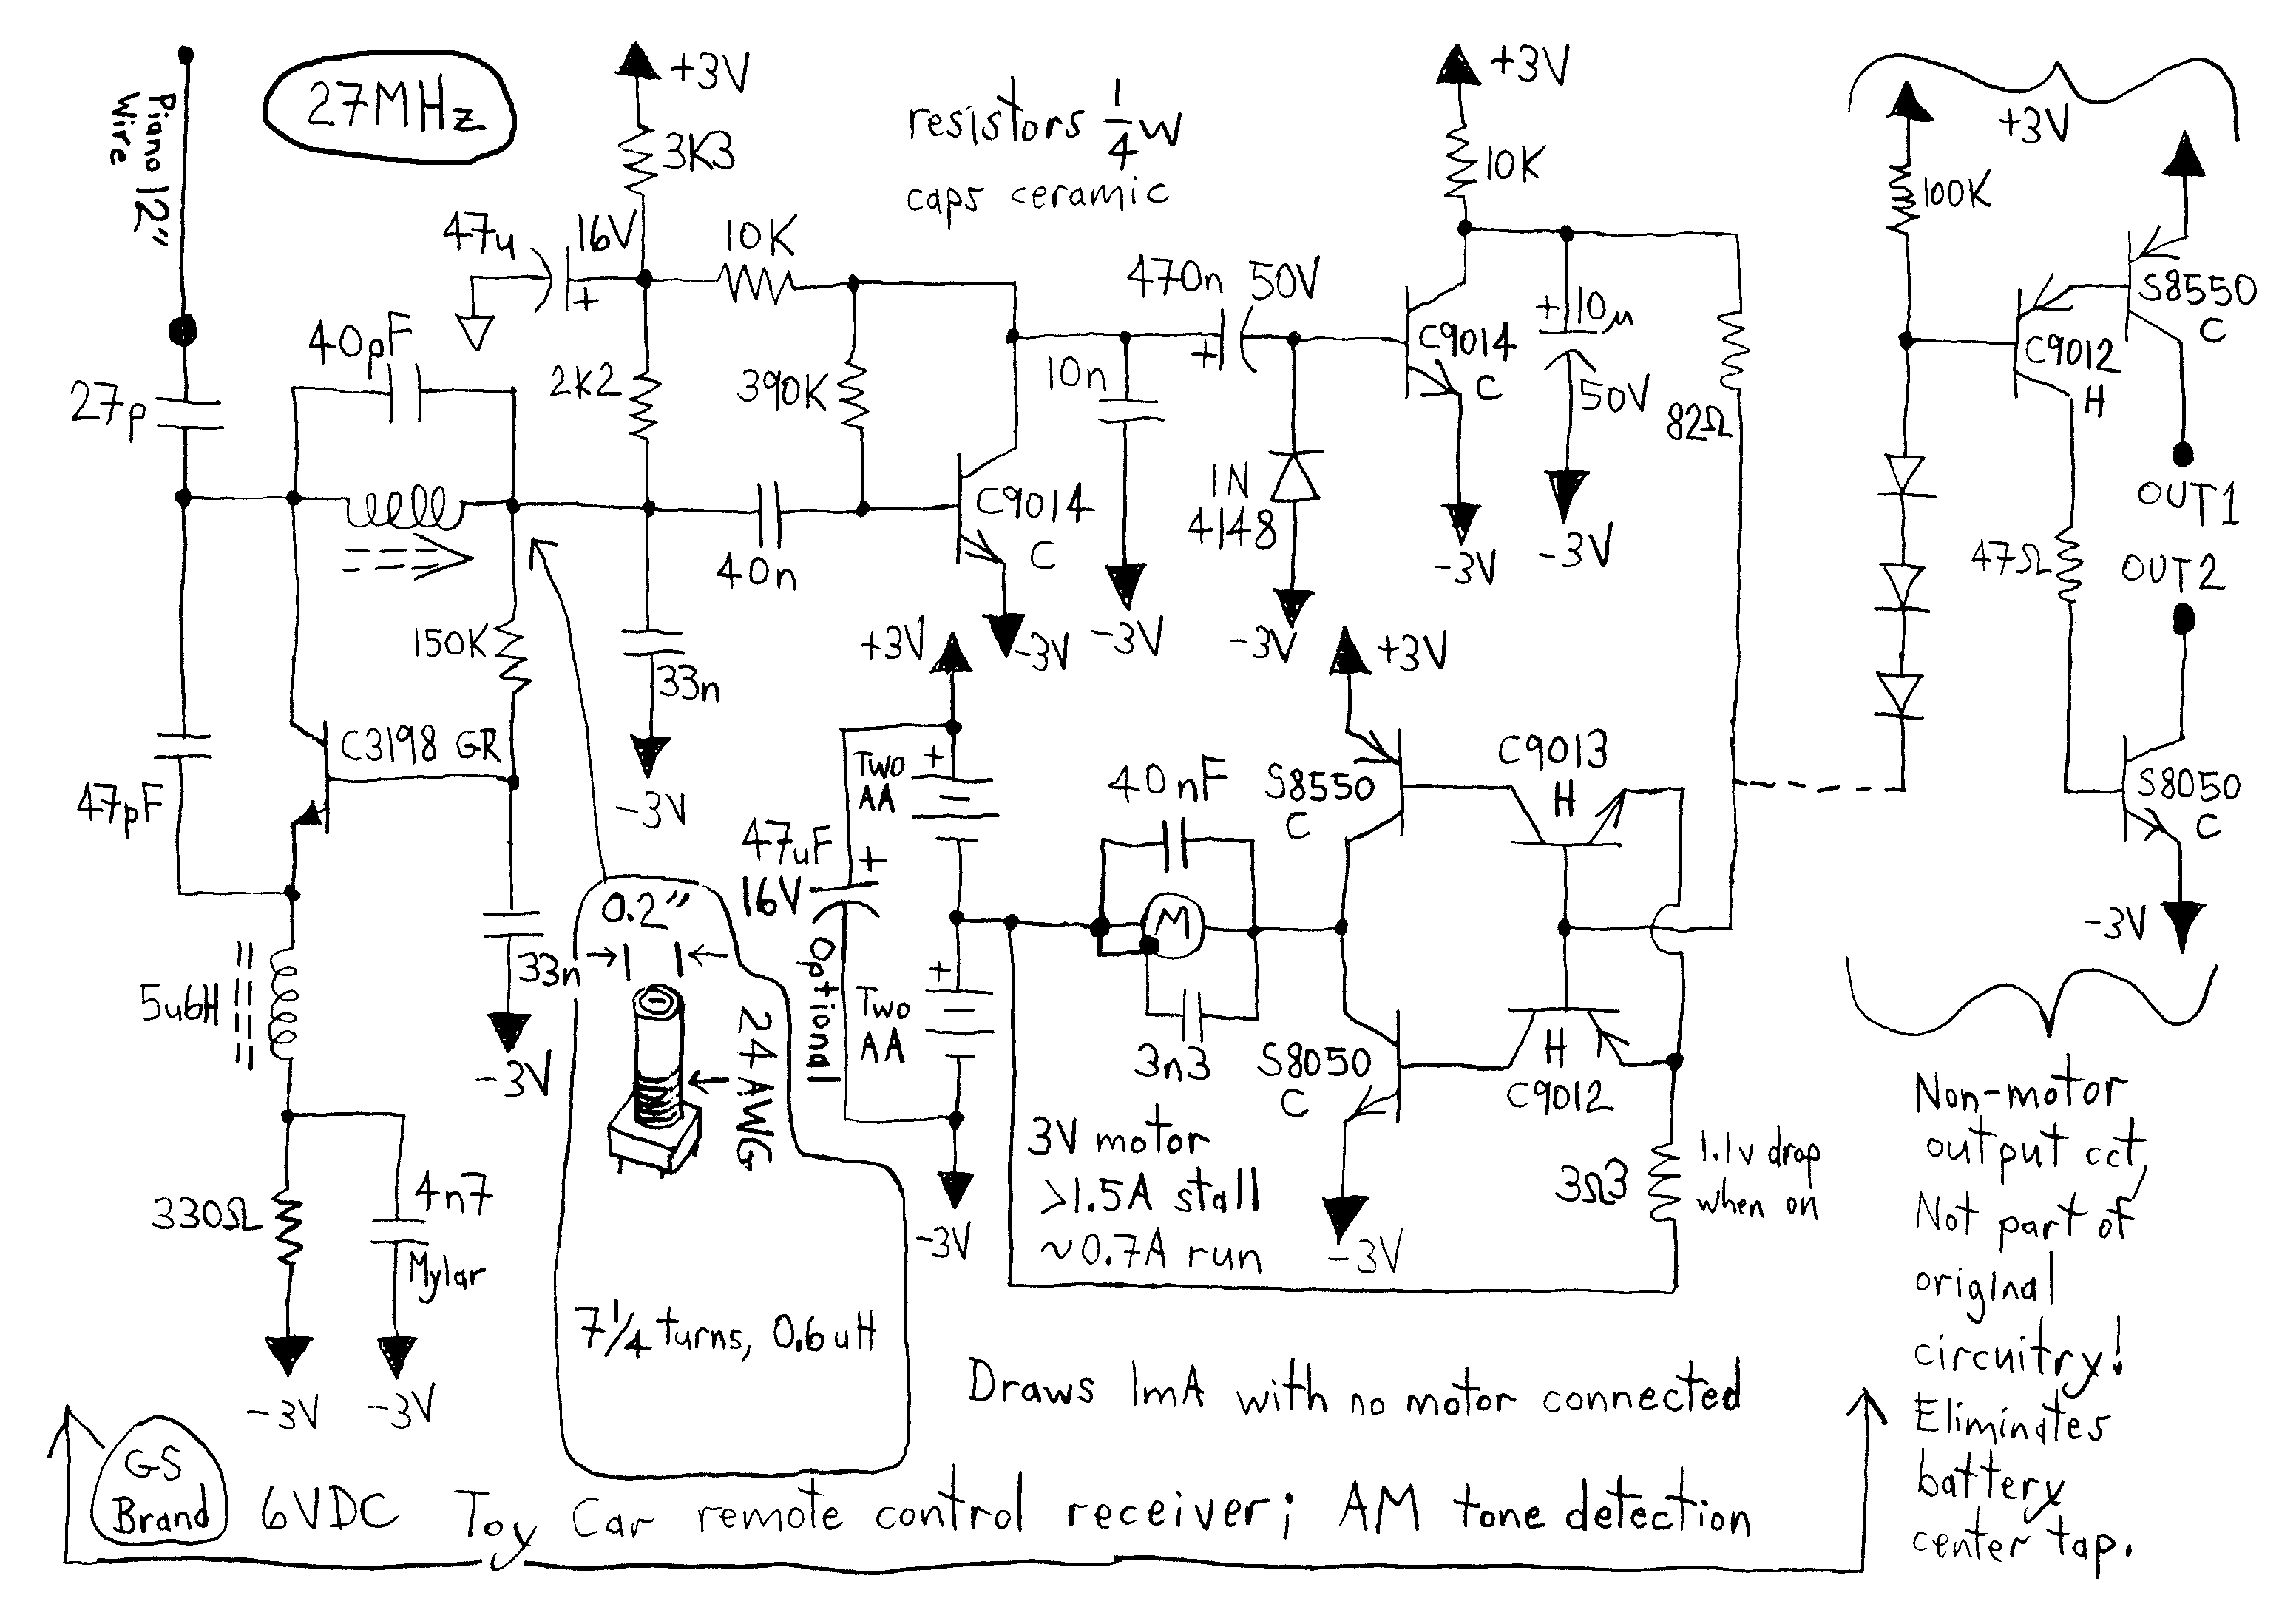 27MHz
Piano 12"
Wire
+3V
3K3
resistors 1/4 W
caps ceramic
+3V
10K
+3V
100K
47u
16V
+
10K
470n 50V
+
C9014
C
+10µ
50V
82Ω
C9012
H
S8550
C
40pF
27p
2K2
390K
10n
1N
4148
C9014
C
40n
OUT1
OUT2
47Ω
-3V
-3V
-3V
-3V
-3V
150K
33n
-3V
C3198 GR
47pF
+3V
Two
AA
+
47uF
16V
+
Optional
Two
AA
+
-3V
+3V
40nF
M
3n3
S8550
C
C9013
H
S8050
C
H
C9012
-3V
S8050
C
-3V
5u6H
33n
-3V
0.2"
24 AWG
7 1/4 turns, 0.6uH
330Ω
4n7
Mylar
-3V
-3V
3V motor
>1.5A stall
~0.7A run
3Ω3
1.1v drop
when on
Draws 1mA with no motor connected
Non-motor
output cct,
Not part of
original
circuitry!
Eliminates
battery
center tap.
GS
Brand
6VDC Toy Car remote control receiver; AM tone detection